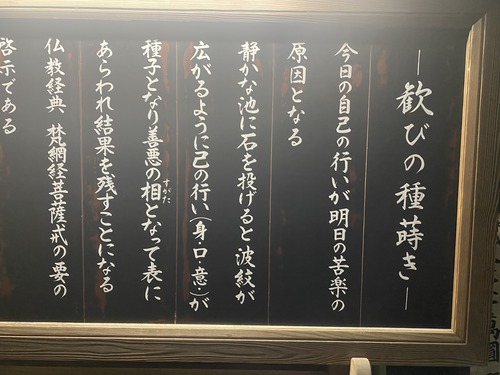 ―歓びの種蒔き―
今日の自己の行いが明日の苦楽の
原因となる
静かな池に石を投げると波紋が
広がるように己の行い(身・口・意・)が
種子となり善悪の相となって表に
すがた
あらわれ結果を残すことになる
仏教経典 梵網経菩薩戒の要の
啓示である